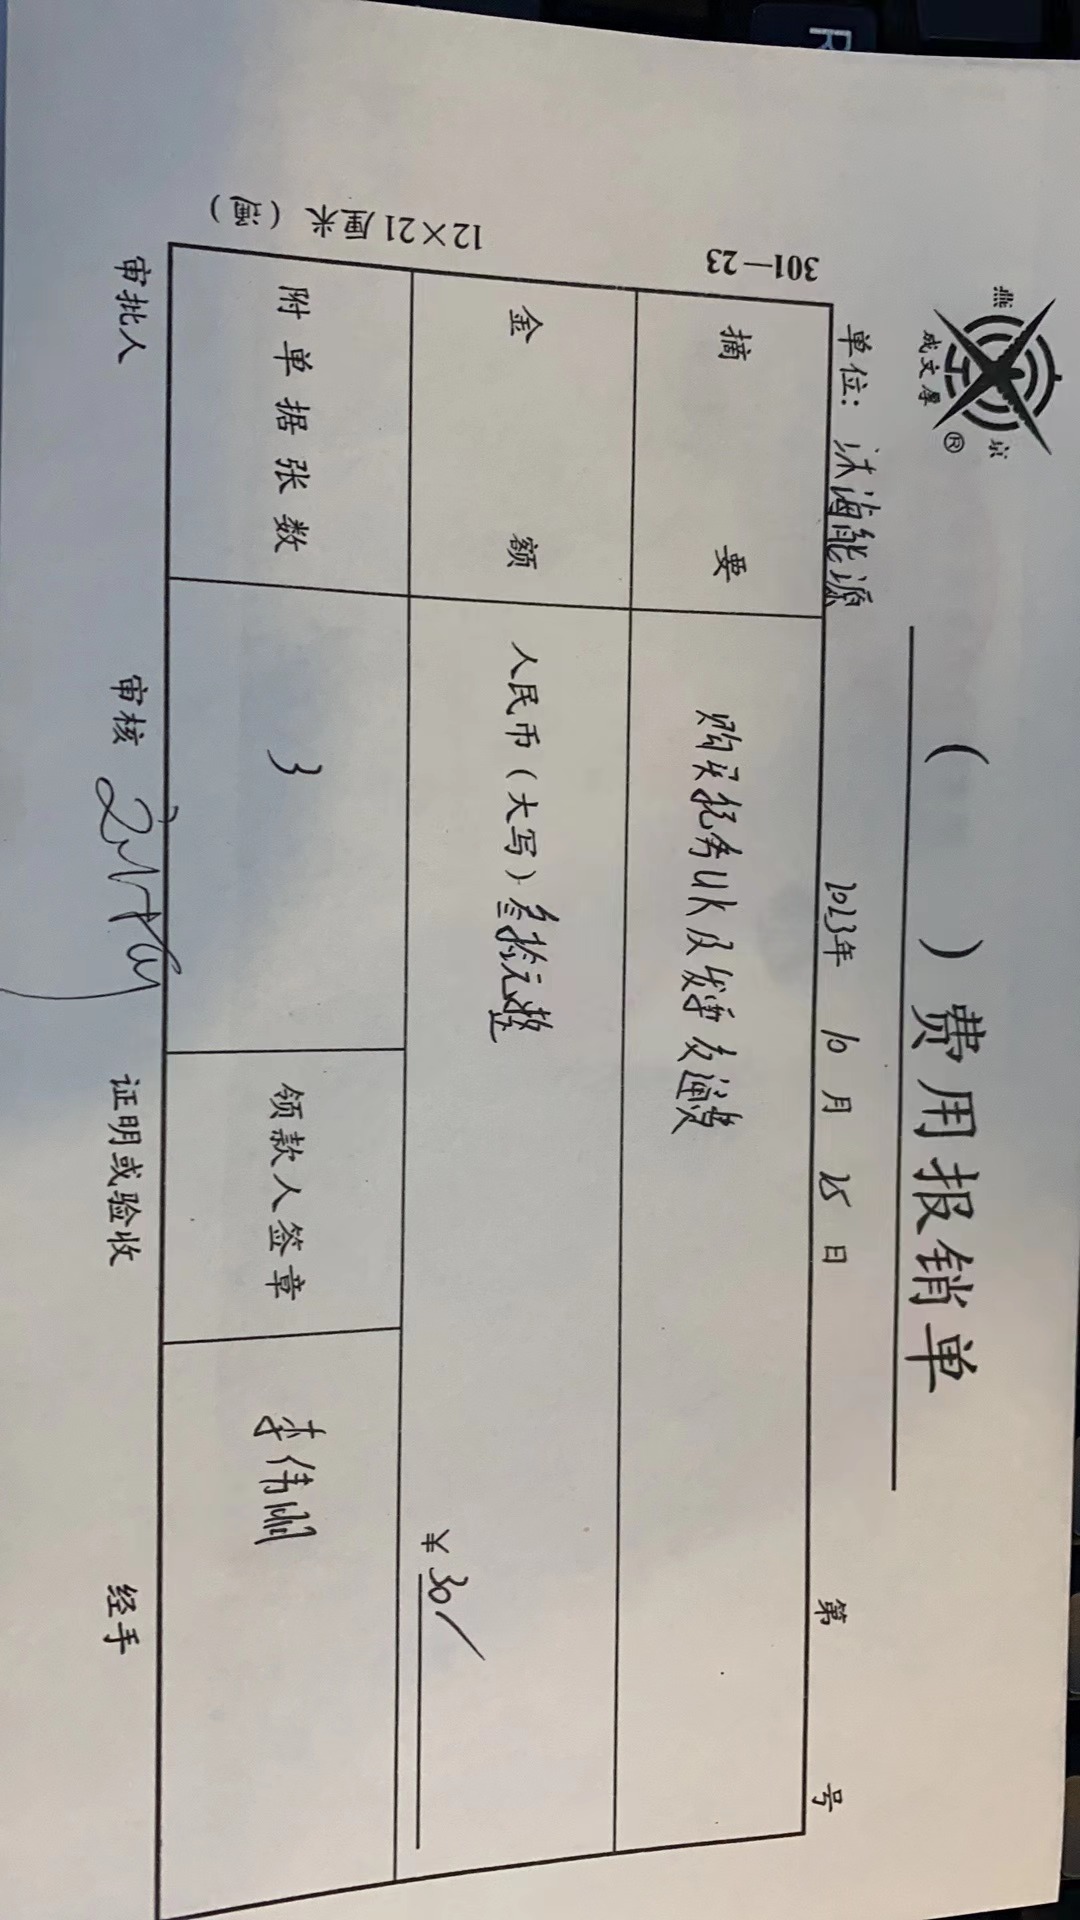 燕 京
成文厚 ®
( ) 费用报销单
单位：沐海能源 2023年 10 月 25 日 第 号
301—23
摘 要 购买税务UK及发票交通费
12×21厘米
金 额 人民币（大写）叁拾元整 ¥30
附单据张数 3 领款人签章 李伟刚
审批人 审核 证明或验收 经手
R